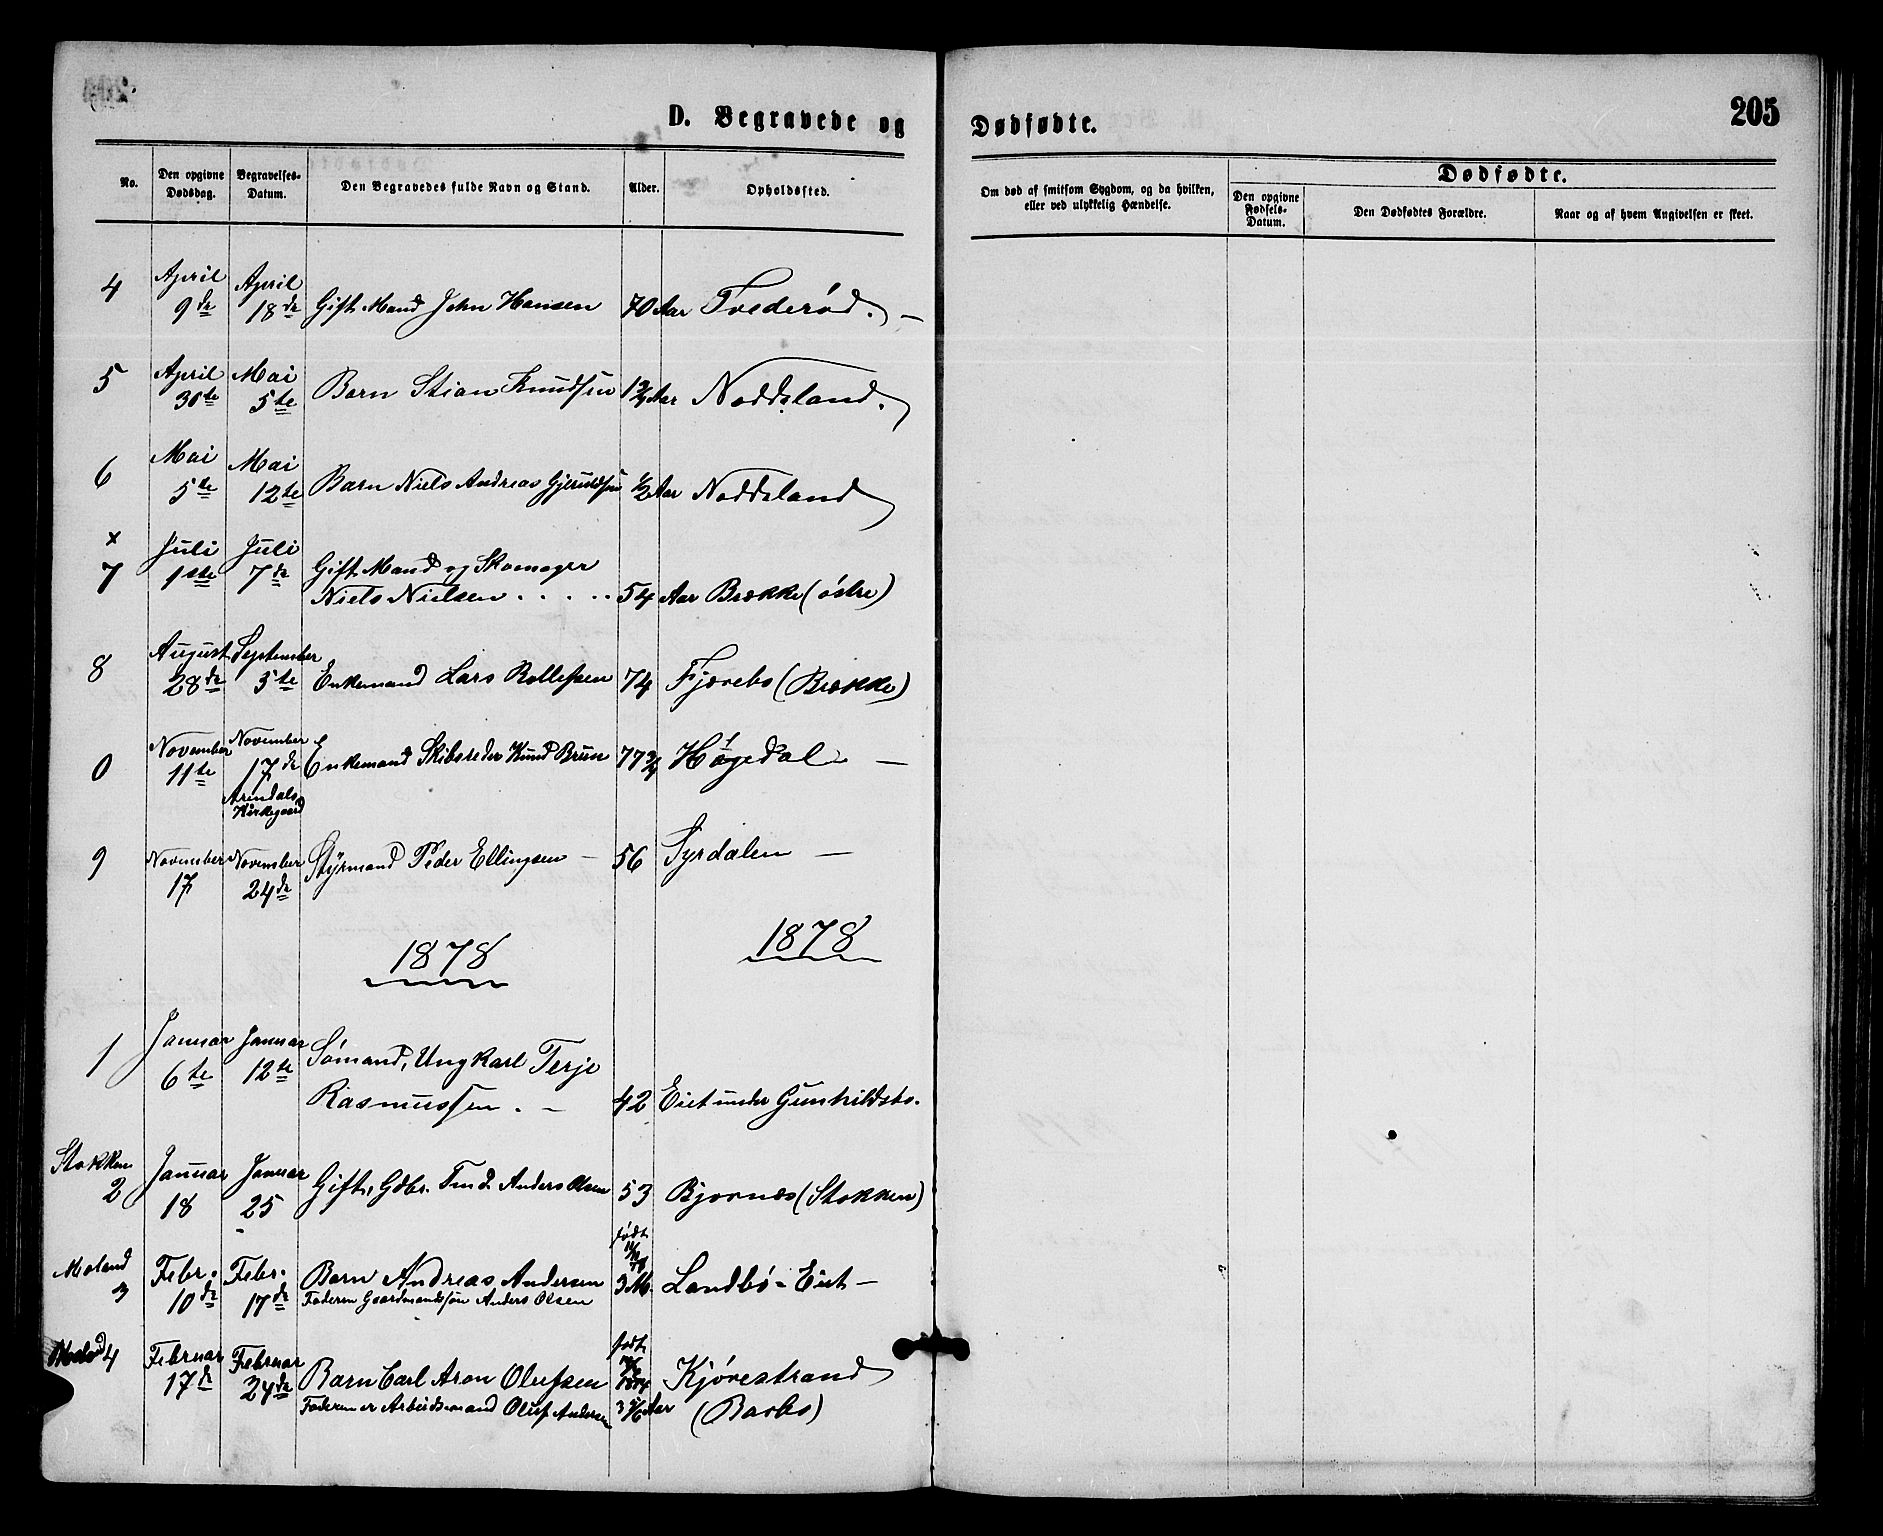 205
D. Begravede og Dødfødte.
No.
Den opgivne Dødsdag.
Begravelses-Datum.
Den Begravedes fulde Navn og Stand.
Alder.
Opholdssted.
Om død af smitsom Sygdom, og da hvilken,
eller ved ulykkelig Hændelse.
Dødfødte.
Den opgivne Fødsels-Datum.
Den Dødfødtes Forældre.
Naar og af hvem Angivelsen er skeet.
April April
4 9de 18de Gift Mand John Hansen 70 Aar Tvederød. —
April Mai
5 30te 5te Barn Stian Knudsen 1 3/4 Aar Noddeland.
Mai Mai
6 5te 12te Barn Niels Andreas Gjeruldsen 1/2 Aar Noddeland
x Juli Juli Gift Mand og Skomager
7 1ste 7de Niels Nielsen . . . . . 54 Aar Brække (østre)
August September
8 28de 5te Enkemand Lars Rollefsen 74 Fjærebo (Brække)
November November
0 11te 17de Enkemand Skibsreder Knud Brun 77 3/4 Høgedal —
Arendals
Kirkegaard
November November
9 17 24de Styrmand Peder Ellingsen — 56 Syrdalen —
1878 1878
Januar Januar Sømand, Ungkarl Terje
1 6te 12te Rasmussen. — 42 Eiet under Gunhildsbo.
Stokken Januar Januar
2 18 25 Gift, Gdbr. Anders Olsen 53 Bjornæs (Stokken)
født
Moland Febr. Febr. Barn Andreas Andersen
3 10de 17de Faderen Gaardmandssøn Anders Olsen 3 M. Landbø-Eiet —
født
4 Februar Februar
17de 24de Barn Carl Aron Olufsen 1874 Kjørestrand
Faderen er Arbeidsmand Oluf Andersen 3 5/6 Aar (Barbo)